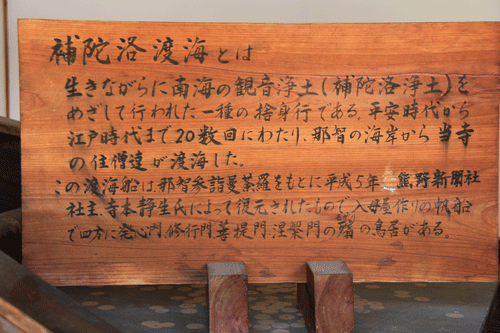 補陀洛渡海とは
生きながらに南海の観音浄土(補陀洛浄土)を
めざして行われた一種の捨身行である。平安時代から
江戸時代まで20数回にわたり、那智の海岸から当寺
の住僧達が渡海した。
この渡海船は那智参詣曼荼羅をもとに平成5年 熊野新聞社
社主、寺本静生氏によって復元されたもので、入母屋作りの帆船
で四方に発心門、修行門菩提門、涅槃門の の鳥居がある。